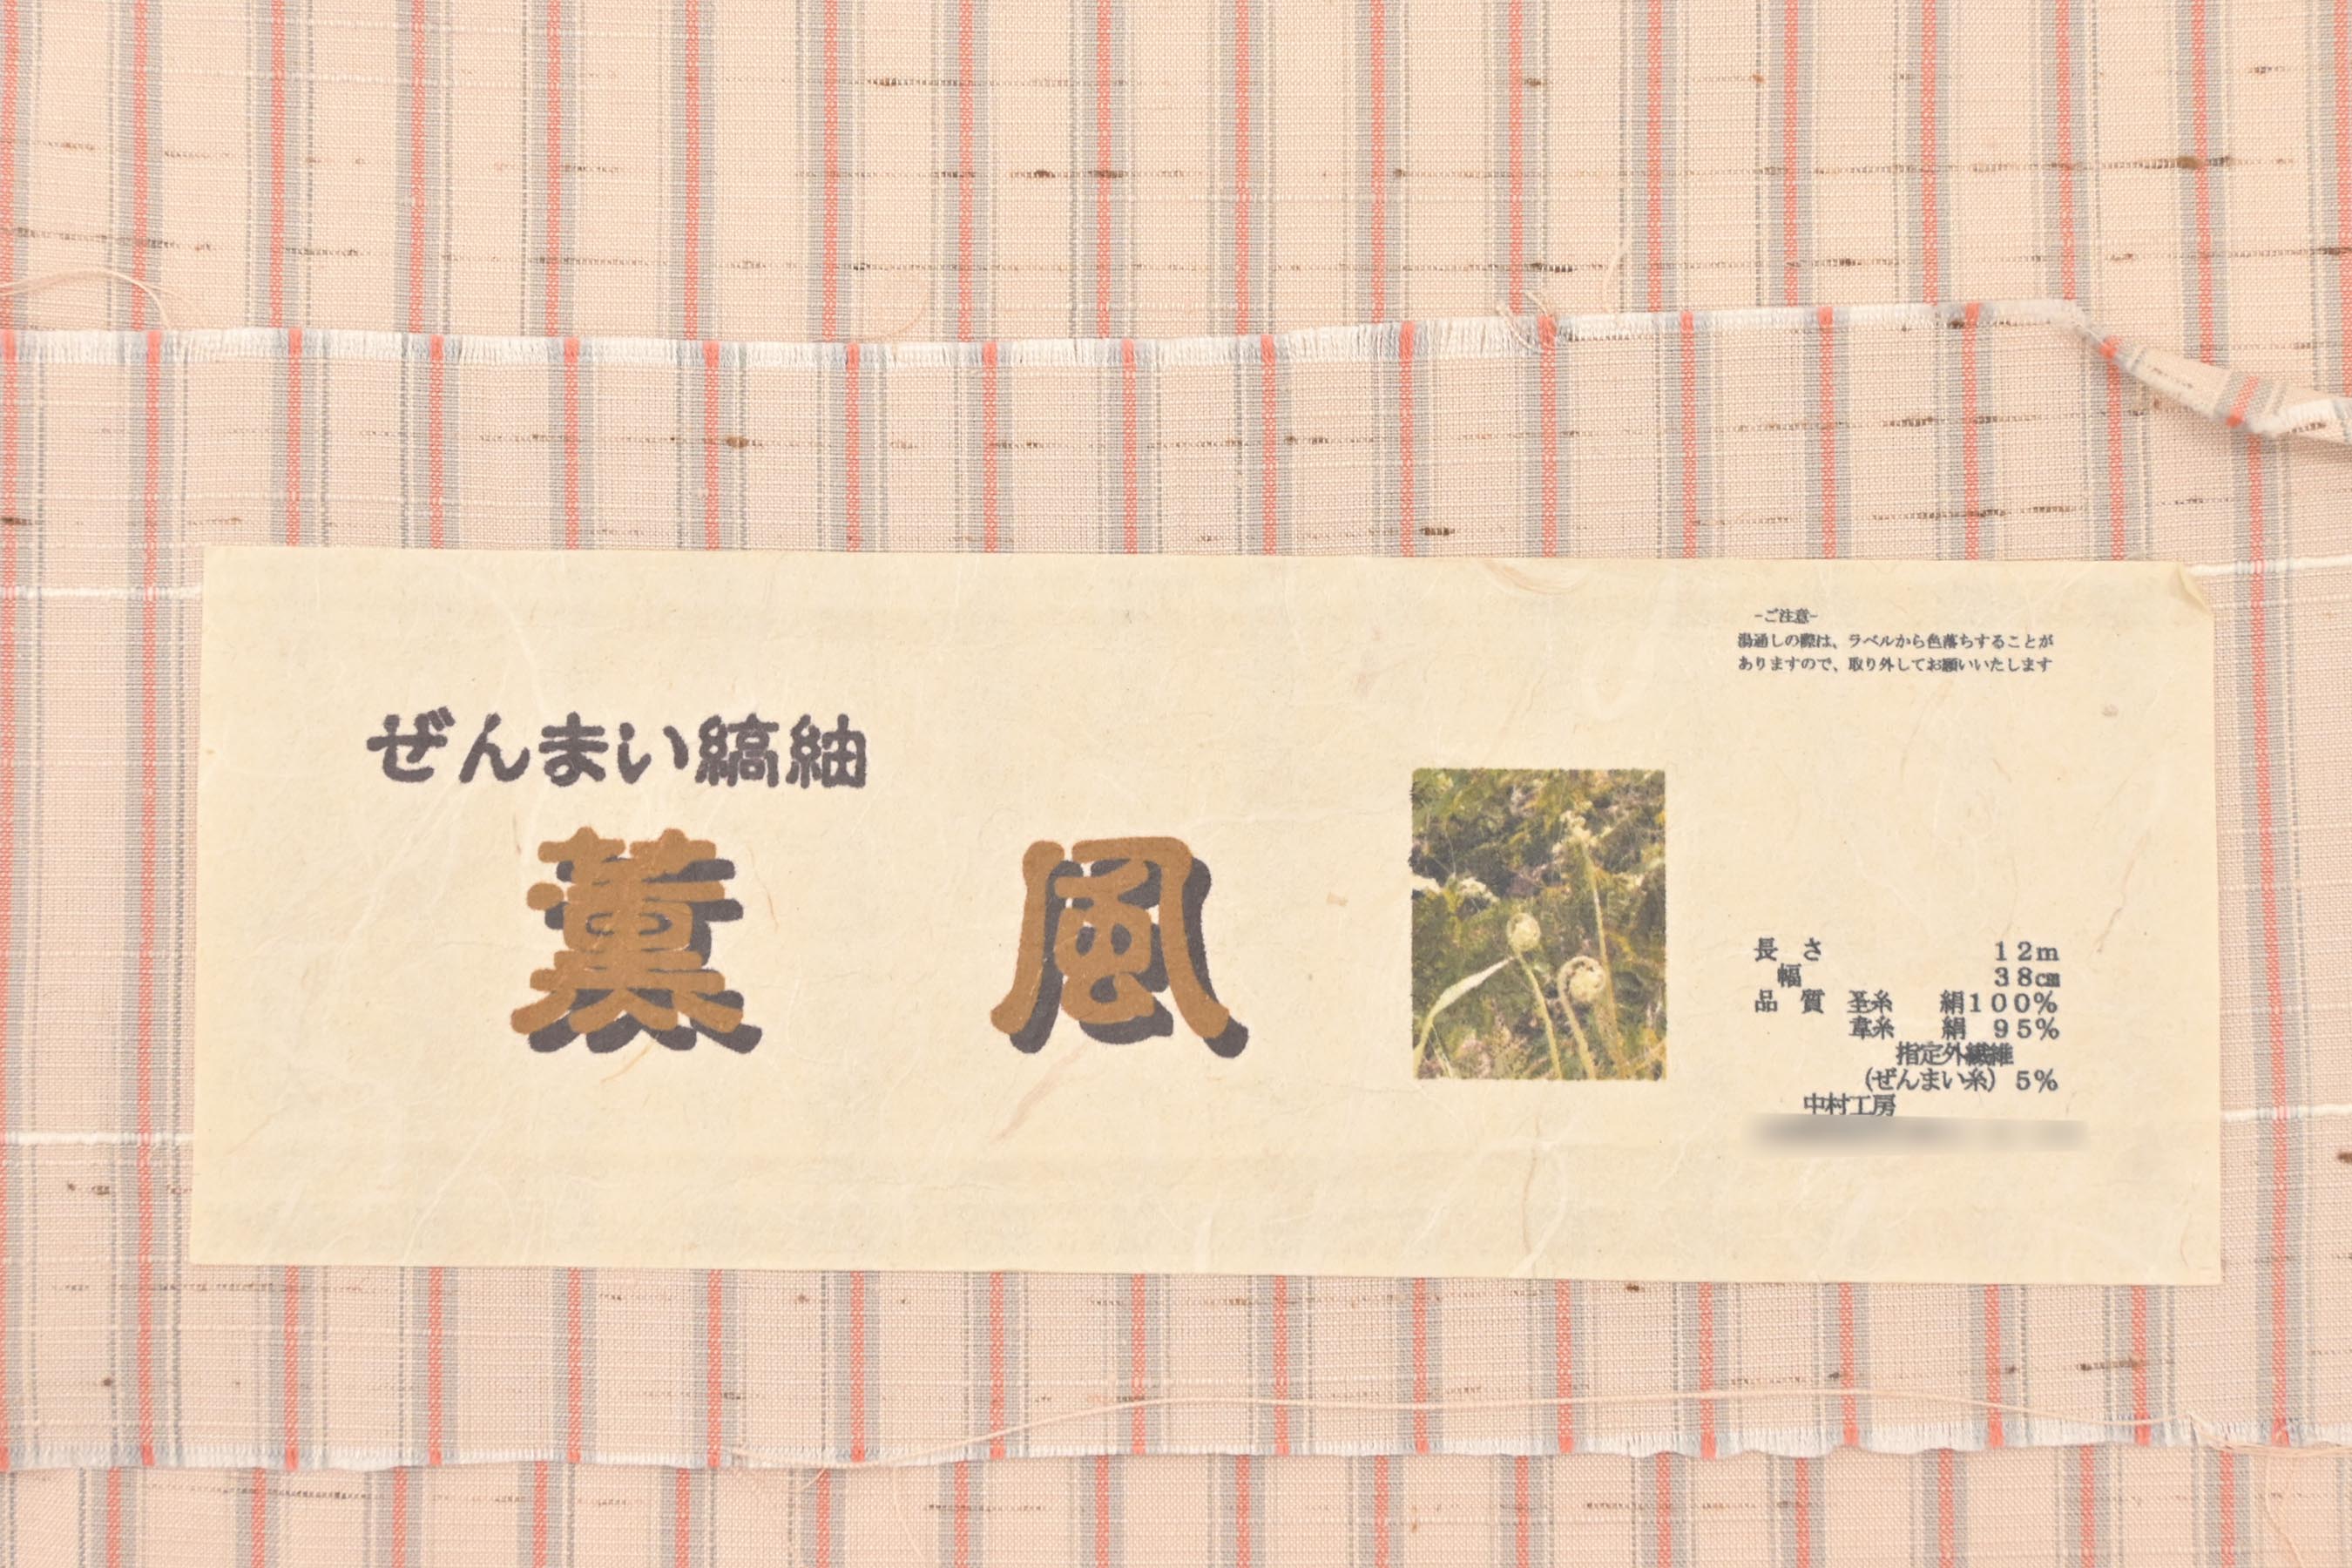 ぜんまい縞紬
薫風
-ご注意-
湯通しの際は、ラベルから色落ちすることが
ありますので、取り外してお願いいたします
長さ 12m
幅 38cm
品質 圣糸 絹100%
韋糸 絹 95%
指定外繊維
(ぜんまい糸) 5%
中村工房